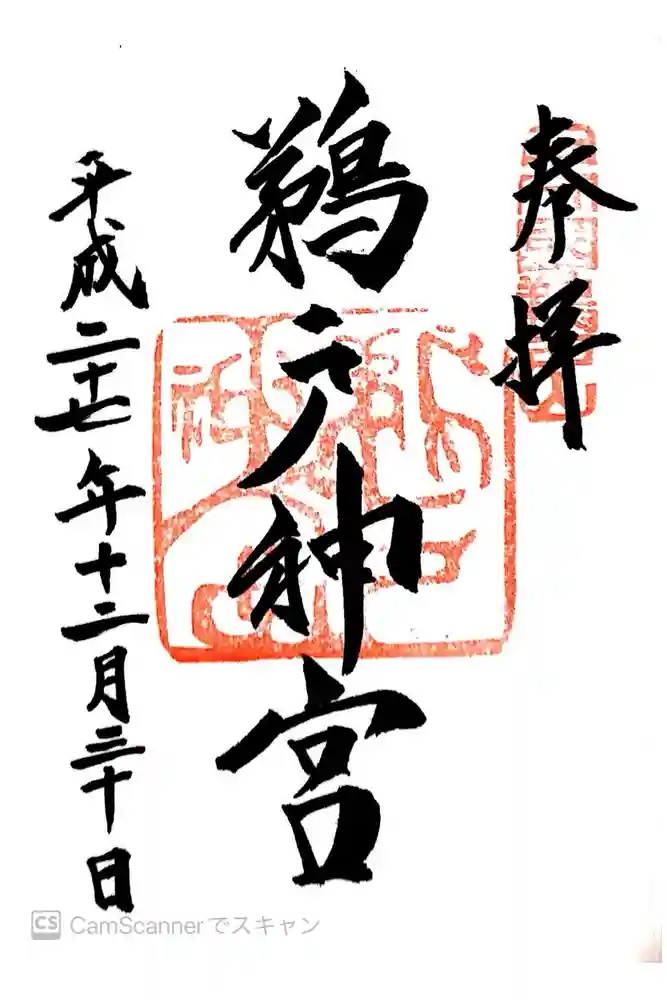 奉拝
鵜戸神宮
平成二十七年十二月三十日
CS CamScannerでスキャン